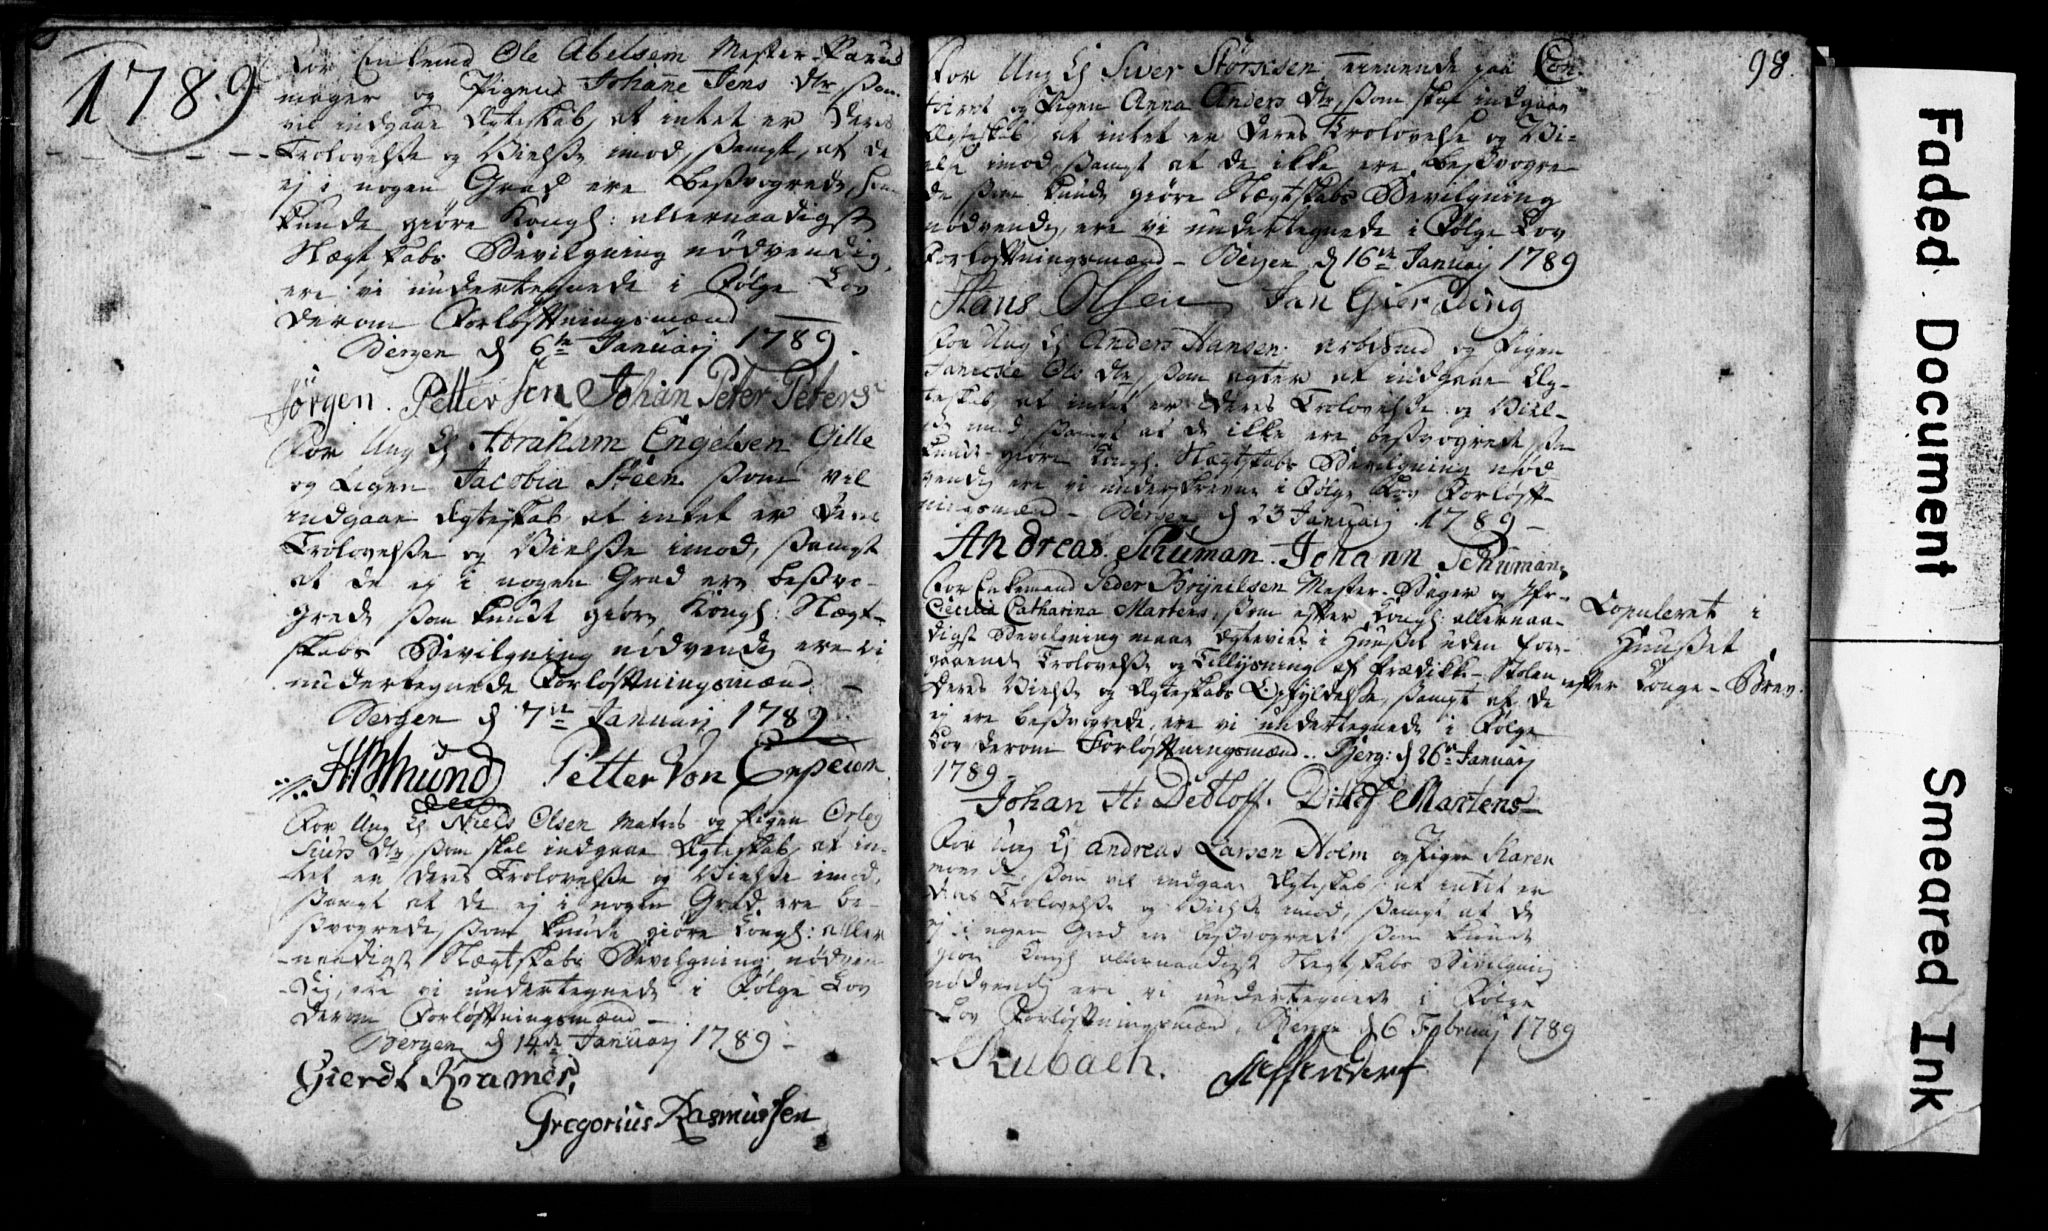 1789
For Enkemd Ole Abelsem Mester-Parüd
mager og Pigen Johane Jens dtr, som
vil indgaae Ægteskab, at intet er deres
Trolovelsse og Vielsse imod, sampt, at de
ej i nogen Grad ere besvogrede, som
kunde giöre Kongl: allernaadigst
Slægtskabs Bevilgning nödvendig,
ere vi undertegnede i Fölge Lov
derom Forlöftningsmænd
Bergen d 6te Januarj 1789.
Jörgen Pettersen Johan Peter Peters
For Ung K Abraham Engelsen Gille
og Pigen Jacobia Steen som vil
indgaae Ægteskab, at intet er deres
Trolovelsse og Vielsse imod, sampt
at de ej i nogen Grad ere besvo-
grede, som kunde giöre Kongl: Slægt-
skabs Bevilgning nödvendig ere vi
undertegnede Forlöftningsmænd
Bergen d 7de Januarj 1789
Petter Von Erpecom
For Ung K Niels Olsen Matros og Pigen Orley
Siurs dtr, som skal indgaae Ægteskab, at in-
tet er deres Trolovelsse og Vielsse imod,
sampt at de ej i nogen Grad ere be-
svogrede, som kunde giöre Kongl: aller
naadigst Slægtskabs Bevilgning nödven
dig, ere vi undertegnede i Fölge Lov
derom Forlöftningsmænd
Bergen d 14de Januarj 1789
Gierdt Kramer,
Gregorius Rasmussen
98.
For Ung K Siver Störksen tienende paa Con-
toiret og Pigen Anna Anders dtr, som skal indgaae
Ægteskab at intet er deres Trolovelse og Vi-
else imod, sampt at de ikke ere besvogre
de som kunde giöre Slægtskabs Bevilgning
nödvendig, ere vi undertegnede i Fölge Lov
Forlöftningsmænd - Bergen d 16de Januarj 1789
Hans Olsen Jan Gierding
For Ung K Anders Hansen arbeidsmd og Pigen
Janicke Ols dtr, som agter at indgaae Æg-
teskab at intet er deres Trolovelsse og Viel-
se imod, sampt at de ikke ere besvogrede, som
kunde giöre Kongl. Slægtskabs Bevilgning nöd
vendig ere vi underskrevne i Fölge Lov Forlöft-
ningsmænd - Bergen d 23 Januarj 1789 -
Andreas Schuman Johann Schuman
For Enkemand Peder Brynilsen Mester-Bager og Jfr.
Cicilia Catharina Martens, som efter Kongl: allernaa-
digst Bevilgning maae Ægtevies i Huuset uden fore-
gaaende Trolovelsse og Tillysning af Prædikke-Stolen
deres Vielsse og Ægteskabs Opfyldelse, sampt at de
ej ere besvogrede, ere vi undertegnede i Fölge
Lov derom Forlöftningsmænd. Berg: d 26de Januarj
1789
Johan H. Detloff. Ditlef Martens
Copuleret i
Huuset
efter Konge-Brev.
For Ung K Andreas Larsen Holm og Pigen Karen
Mons dtr, som vil indgaae Ægteskab, at intet er
deres Trolovelsse og Vielsse imod, sampt at de
ej i nogen Grad er besvogrede som kunde
giöre Kongl allernaadigst Slegtskabs Bevilgning
nödvendig ere vi undertegnede i Fölge
Lov Forlöftningsmænd, Bergen d 6 Februarj 1789
Kubach.
Faded Document
Smeared Ink